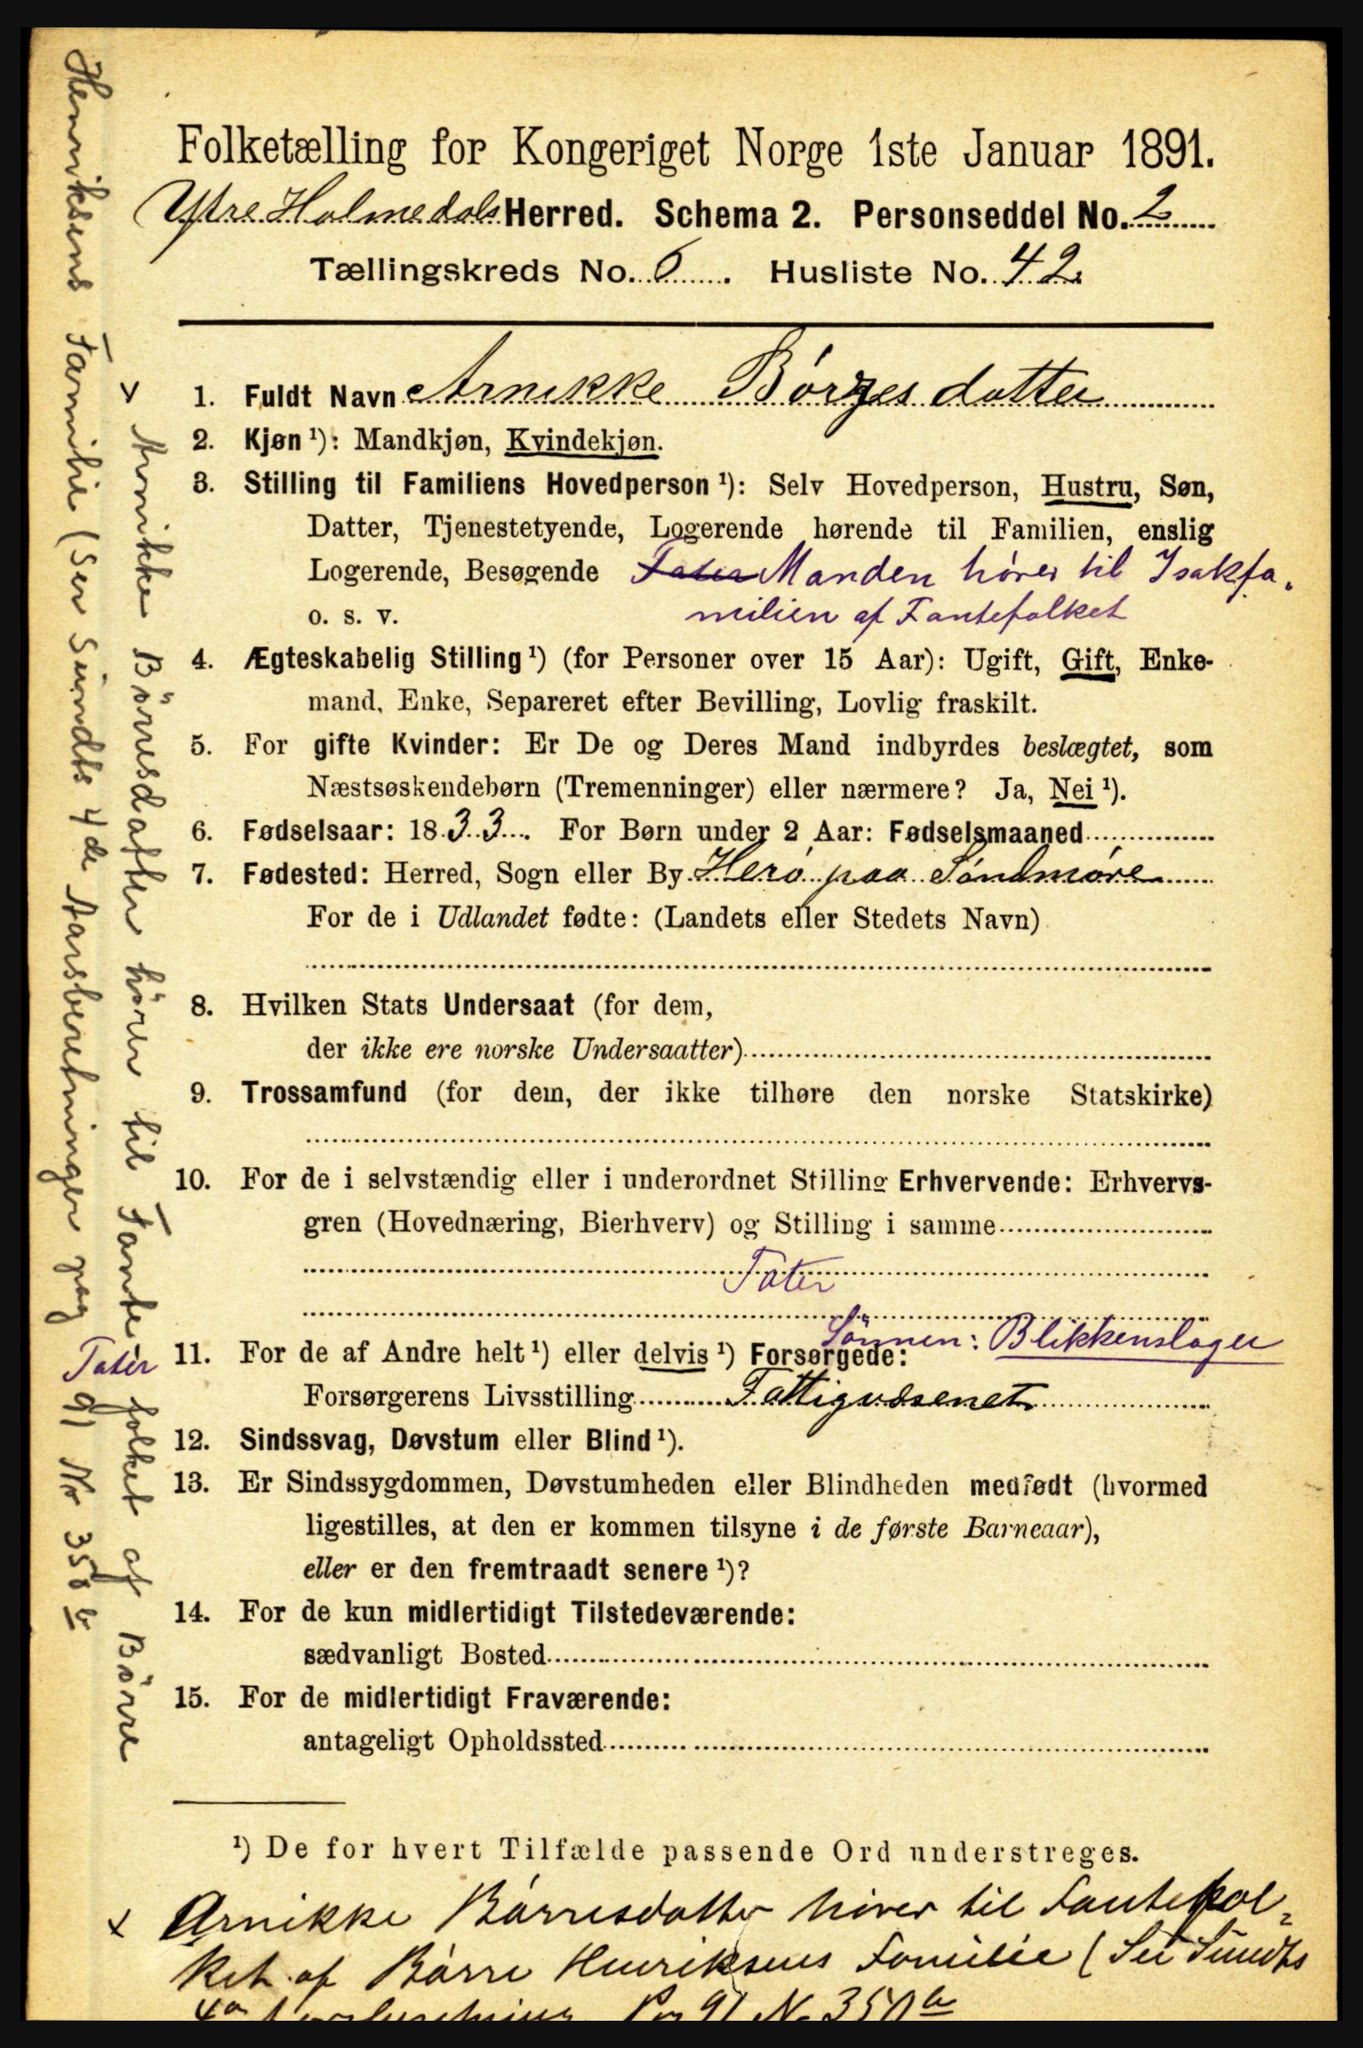 Folketælling for Kongeriget Norge 1ste Januar 1891.
Ytre Holmedals Herred. Schema 2. Personseddel No. 2
Tællingskreds No. 6. Husliste No. 42.
1. Fuldt Navn Arnikke Börges datter
2. Kjøn ¹): Mandkjøn, Kvindekjøn.
3. Stilling til Familiens Hovedperson ¹): Selv Hovedperson, Hustru, Søn,
Datter, Tjenestetyende, Logerende hørende til Familien, enslig
Logerende, Besøgende Tater Manden hörer til Isakfa-
o. s. v. milien af Fantefolket
4. Ægteskabelig Stilling ¹) (for Personer over 15 Aar): Ugift, Gift, Enke-
mand, Enke, Separeret efter Bevilling, Lovlig fraskilt.
5. For gifte Kvinder: Er De og Deres Mand indbyrdes beslægtet, som
Næstsøskendebørn (Tremenninger) eller nærmere? Ja, Nei ¹).
6. Fødselsaar: 1833. For Børn under 2 Aar: Fødselsmaaned
7. Fødested: Herred, Sogn eller By Herö paa Söndmöre
For de i Udlandet fødte: (Landets eller Stedets Navn)
8. Hvilken Stats Undersaat (for dem,
der ikke ere norske Undersaatter)
9. Trossamfund (for dem, der ikke tilhøre den norske Statskirke)
10. For de i selvstændig eller i underordnet Stilling Erhvervende: Erhvervs-
gren (Hovednæring, Bierhverv) og Stilling i samme
Tater
Sönnen: Blikkenslager
11. For de af Andre helt ¹) eller delvis ¹) Forsørgede:
Forsørgerens Livsstilling Fattigvæsenet
12. Sindssvag, Døvstum eller Blind ¹).
13. Er Sindssygdommen, Døvstumheden eller Blindheden medfødt (hvormed
ligestilles, at den er kommen tilsyne i de første Barneaar),
eller er den fremtraadt senere ¹)?
14. For de kun midlertidigt Tilstedeværende:
sædvanligt Bosted
15. For de midlertidigt Fraværende:
antageligt Opholdssted
¹) De for hvert Tilfælde passende Ord understreges.
x Arnikke Börresdatter hörer til Fantefol-
ket af Börre Henriksens Familie (Se Sundts
4de Aarsberetning Pag 91 No 350 b
x Arnikke Börresdatter hörer til Fante-folket af Börre
Henriksens Familie (Ser Sundts 4de Aarsberetninger pag 91 Nr 358 b
Tater